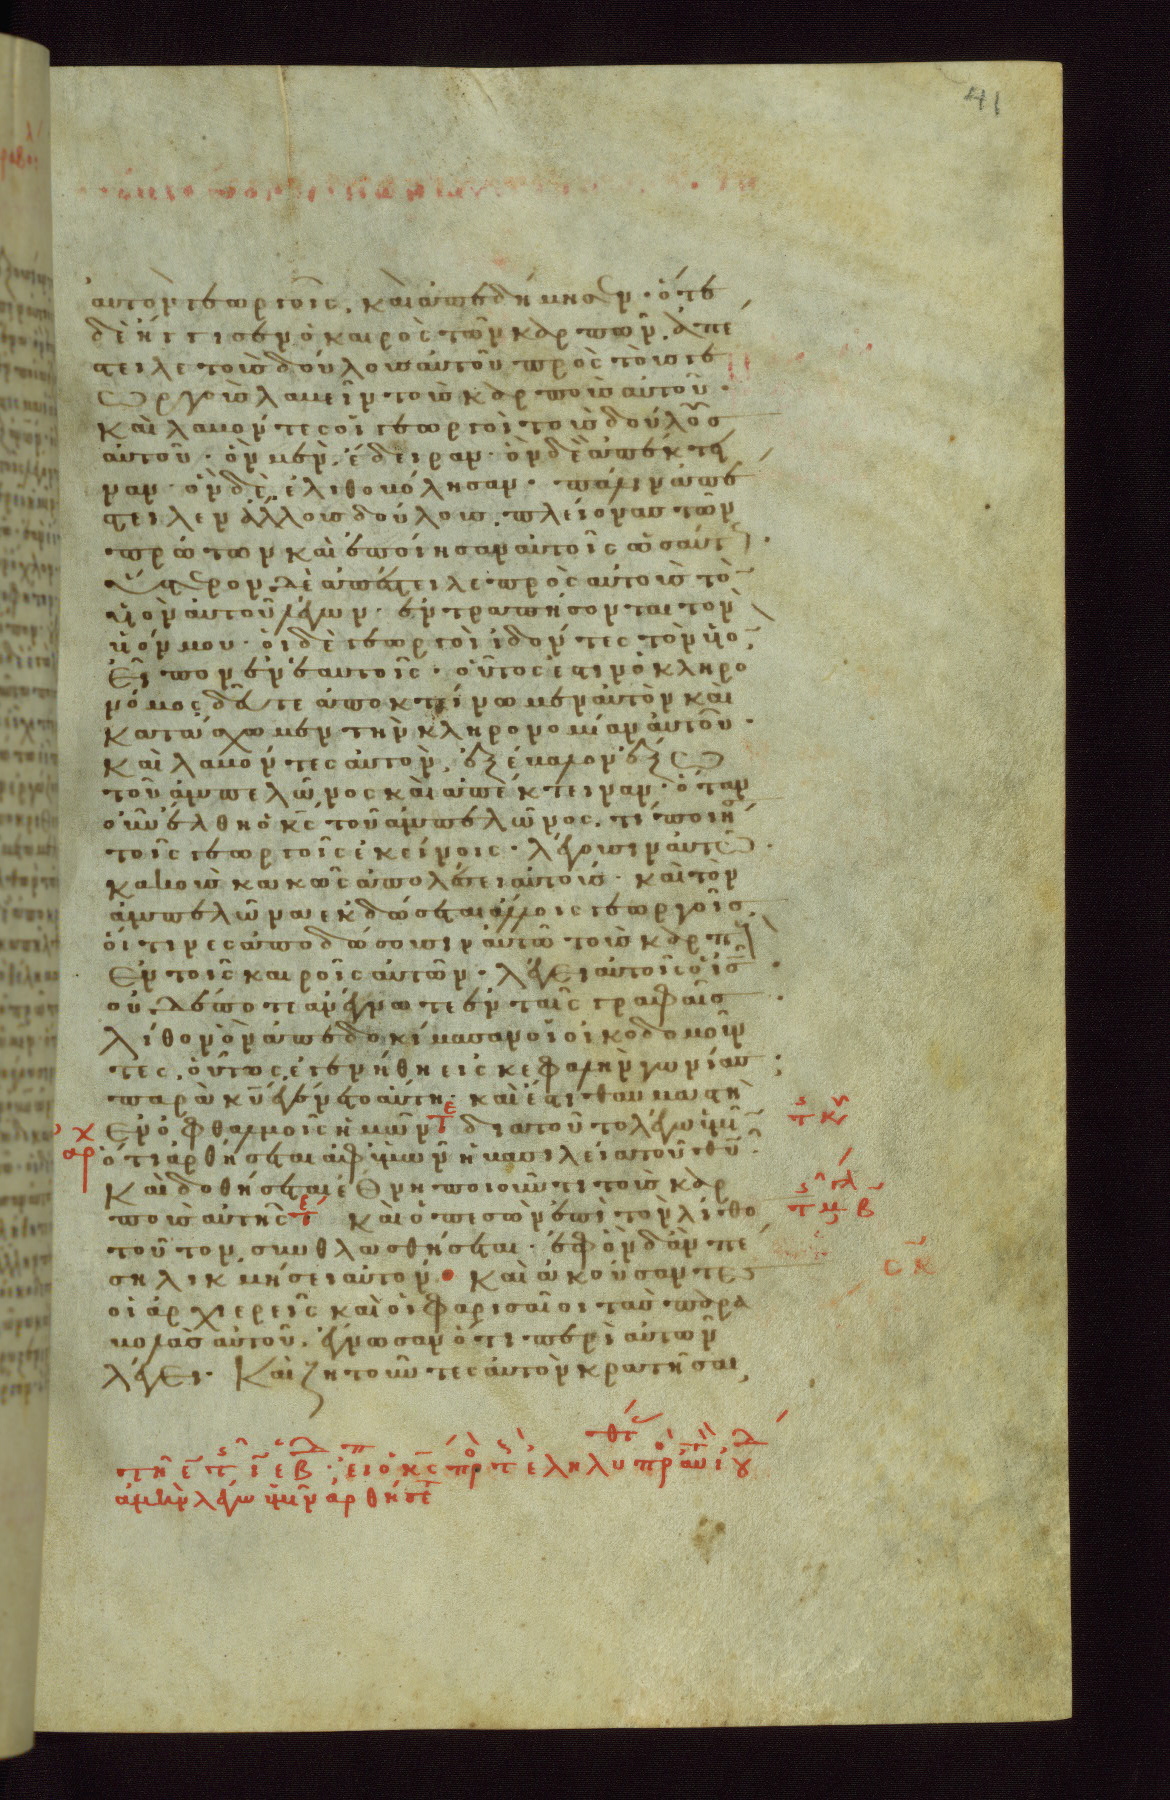 41
αυτὸν γεωργοῖς. καὶ ἀπεδήμησεν· ὅτε
δὲ ἤγγισεν ὁ καιρὸς τῶν καρπῶν. ἀπέ
στειλε τοὺς δούλους αὐτοῦ πρὸς τοὺς γε
ωργοὺς λαβεῖν τοὺς καρποὺς αὐτοῦ·
καὶ λαβόντες οἱ γεωργοὶ τοὺς δούλους
αὐτοῦ· ὃν μὲν, ἔδειραν· ὃν δὲ ἀπέκτει
ναν· ὃν δὲ ἐλιθοβόλησαν· πάλιν ἀπέ
στειλεν ἄλλους δούλους. πλείονας τῶν
πρώτων καὶ ἐποίησαν αὐτοῖς ὡσαύτ(ως)·
ὕστερον δὲ ἀπέστειλε πρὸς αὐτοὺς τὸ̄
υἱὸν αὐτοῦ λέγων· ἐντραπήσονται τὸν
υἱόν μου· οἱ δὲ γεωργοὶ ἰδόντες τὸν υἱὸ̄
εἶπον ἐν ἑαυτοῖς· οὗτός ἐστιν ὁ κληρο
νόμος δεῦτε ἀποκτείνωμεν αὐτὸν καὶ
κατάσχωμεν τὴν κληρονομίαν αὐτοῦ·
καὶ λαβόντες αὐτὸν, ἐξέβαλον ἔξω
τοῦ ἀμπελῶνος καὶ ἀπέκτειναν· ὅταν
οὖν ἔλθῃ ὁ κς̄ τοῦ ἀμπελῶνος. τί ποιή
τοῖς γεωργοῖς ἐκείνοις· λέγουσιν αὐτῶ·
κακοὺς κακῶς ἀπολέσει αὐτούς· καὶ τὸν
ἀμπελῶνα ἐκδώσεται ἄλλοις γεωργοῖς.
οἵτινες ἀποδώσουσιν αὐτῶ τοὺς καρπ(οὺς)
ἐν τοῖς καιροῖς αὐτῶν· λέγει αὐτοῖς ὁ ις̄·
οὐδέποτε ἀνέγνωτε ἐν ταῖς γραφαῖς·
λίθον ὃν ἀπεδοκίμασαν οἱ οἰκοδομοῦν
τες. οὗτος ἐγενήθη εἰς κεφαλὴν γωνίας·
παρὰ κῡ ἐγένετο αὕτη· καὶ ἔστι θαυμαστὴ
ἐν ὀφθαλμοῖς ἡμῶν διατοῦτο λέγω ὑμῖ̄
ὅτι ἀρθήσεται ἀφ ὑμῶν ἡ βασιλεία τοῦ θῡ·
καὶ δοθήσεται ἔθνη ποιοῦντι τοὺς καρ
ποὺς αὐτῆς καὶ ὁ πεσὼν ἐπὶ τὸν λίθο
τοῦτον, συνθλασθήσεται· ἐφ ὃν δἂν πέ
σῃ λικμήσει αὐτόν· καὶ ἀκούσαντες
οἱ ἀρχιερεῖς καὶ οἱ φαρισαῖοι τὰς παρα
βολὰς αὐτοῦ. ἔγνωσαν ὅτι περὶ αὐτῶν
λέγει· καὶ ζητοῦντες αὐτὸν κρατῆσαι,
ἀμὴν λέγω ὑμῖν ἀρθήσετ